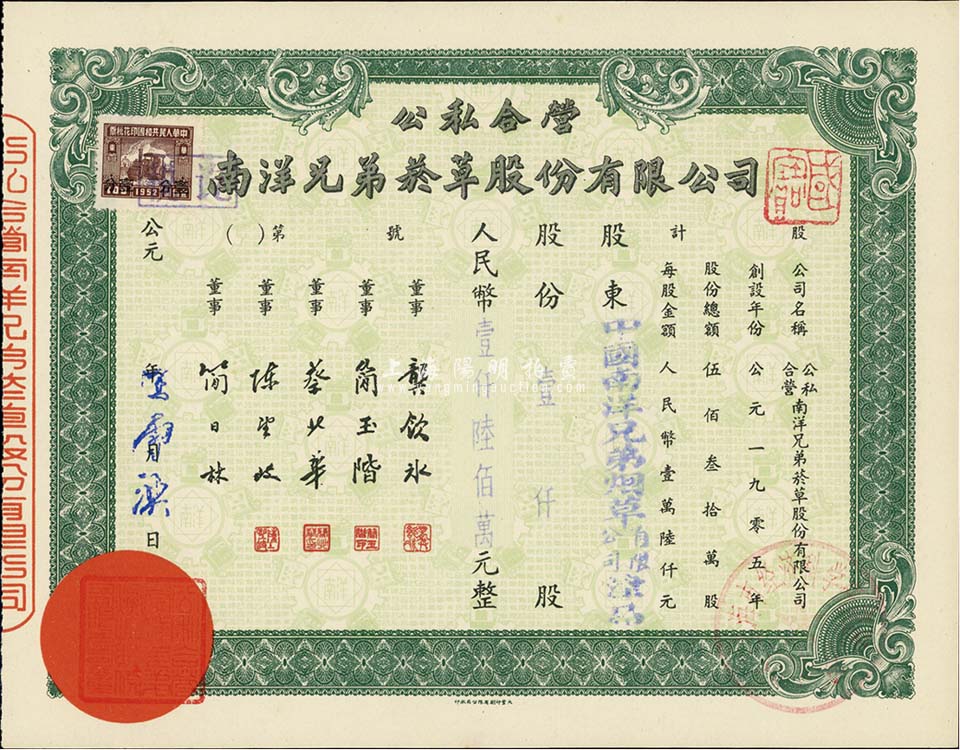 公私合營
南洋兄弟菸草股份有限公司
中華人民共和國印花稅票
1952
股
計
號
第
( )
公司名稱 公私合營南洋兄弟菸草股份有限公司
創設年份 公元一九零五年
股份總額 伍佰叁拾萬股
每股金額 人民幣壹萬陸仟元
股東 中國南洋兄弟烟草公司有限
股份 壹仟股
人民幣壹仟陸佰萬元整
董事 龔飲冰
董事 簡玉階
董事 蔡北華
董事
董事 簡日林
公元 年 月 日
上海陽明拍賣
www.yangmingauction.com
大業印刷有限公司承印
公私合營南洋兄弟菸草股份有限公司